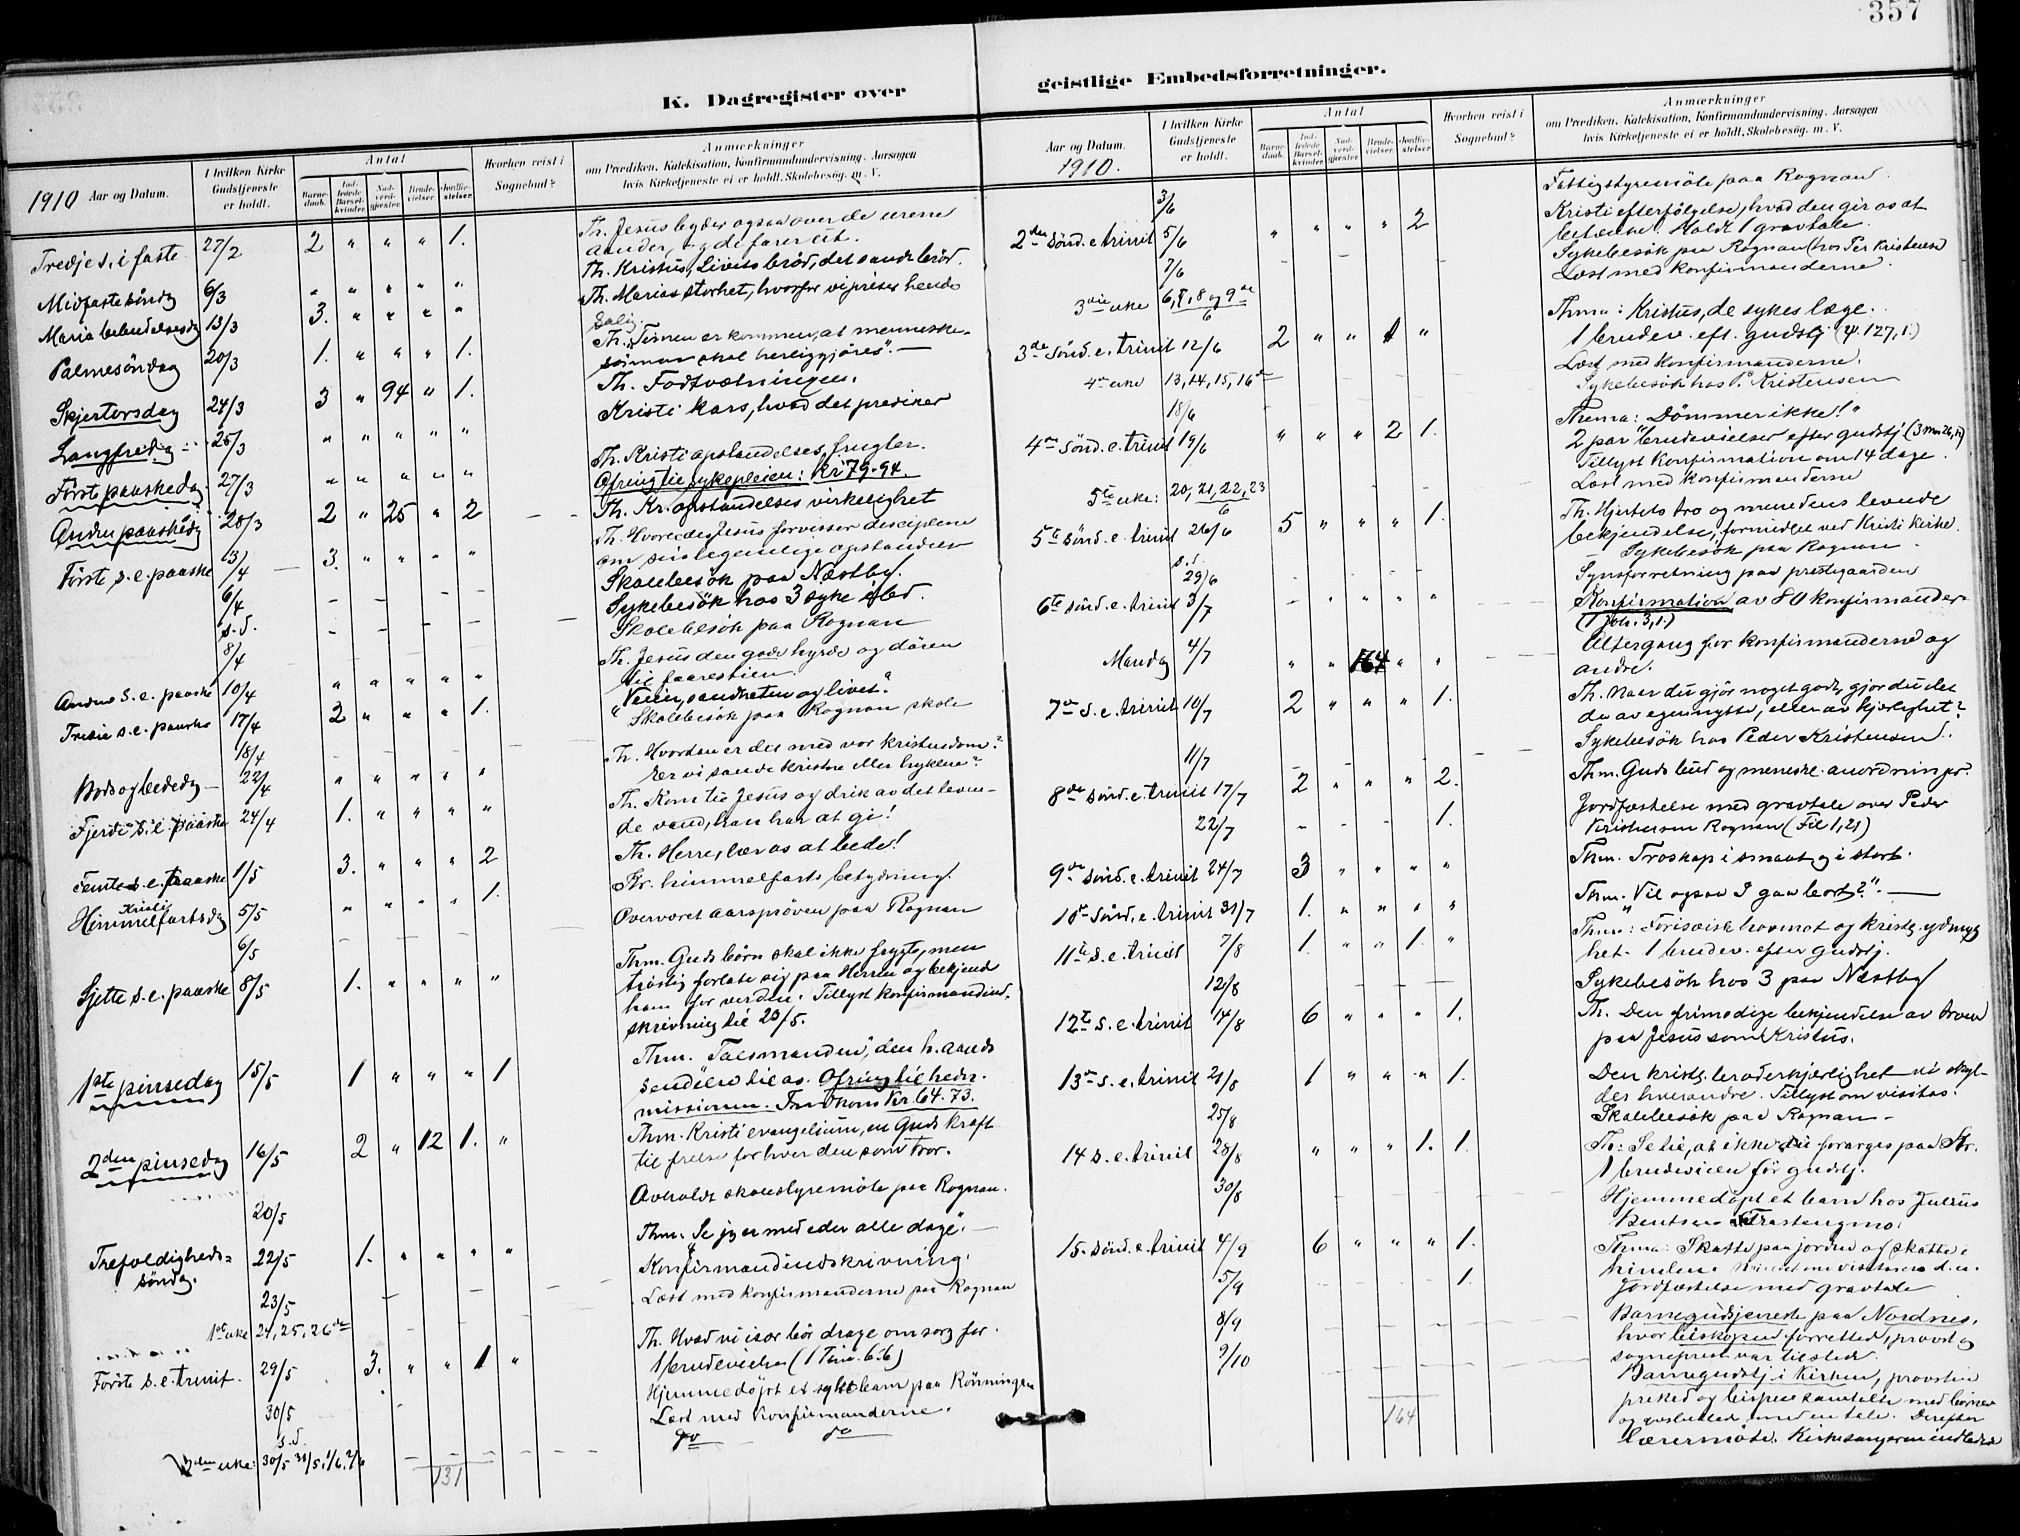 357
K. Dagregister over
geistlige Embedsforretninger.
1910 Aar og Datum.
I hvilken Kirke Gudstjeneste er holdt.
Antal
Barne-daab.
Ind-ledede Barsel-kvinder.
Nad-verd-gjester.
Brude-vielser.
Jordfæ-stelser.
Hvorhen reist i Sognebud?
Anmærkninger
om Prædiken, Katekisation, Konfirmandundervisning. Aarsagen
hvis Kirketjeneste ei er holdt. Skolebesøg. m. V.
Tredje s. i faste 27/2 2 " " " 1. Th. Jesus byder ogsaa over de urene
aander, og de farer ut.
Midfastesöndag 6/3 " " " " " Th. Kristus, Livets bröd, det sande bröd.
Maria bebudelsesdag 13/3 3. " " " " Th. Marias storhet, hvorfor vi priser hende
salig.
Palmesöndag 20/3 1. " " " 1. Th. "Timen er kommen, at menneske-
sönnen skal herliggjöres". —
Skjertorsdag 24/3 3 " 94 " 1. Th. Fodtvætningen.
Langfredag 25/3 " " " " " Kristi kors, hvad det prædiker
Förste paaskedag 27/3 " " " " " Th. Kristi opstandelses frugter.
Ofring til sykepleien: Kr 79.94.
Anden paaskedag 28/3 2 " 25 " 2 — Th. Kr. opstandelses virkelighet
Förste s. e. paaske 3/4 — 3. " " " " Th. Hvorledes Jesus forvisser disciplene
om sin legemlige opstandelse
6/4 Skolebesök paa Næstby.
s. d. Sykebesök hos 3 syke sted.
8/4 Skolebesök paa Rognan
Anden s. e. paaske 10/4 " " " " " Th. Jesus den gode hyrde og dören
til faarestien.
Tredie s. e. paaske 17/4 2 " " " 1. "Veien, sandheten og livet."
18/4 Skolebesök paa Rognan skole
Bods og bededag — 22/4 " " " " " Th. Hvordan er det med vor kristendom?
Er vi sande kristne eller hyklere?
Fjerde s. e. paaske 24/4 1. " " " " Th. Kom til Jesus og drik av det leven-
de vand, han har at gi!
Femte s. e. paaske 1/5 3. " " " 2 Th. Herre, lær os at bede!
Kristi Himmelfartsdag 5/5 " " " " 1. Kr. himmelfarts betydning.
6/5 Overværet aarsprøven paa Rognan
Sjette s. e. paaske 8/5 1. " " " " Thm. Guds börn skal ikke frygte, men
tröstig forlate sig paa Herren og bekjende
ham for verden. Tillyst konfirmandind-
skrivning til 23/5.
1ste pinsedag 15/5 1 " " " 1 Thm. Talsmanden, den h. aands
sendelse til os. Ofring til hedn.
missionen. Indkom Kr. 64.73.
2den pinsedag 16/5 2 " 12 1. " Thm. Kristi evangelium, en Guds kraft
til frelse for hver den som tror.
20/5 Avholdt skolestyremöte paa Rognan.
Trefoldigheds-söndag. 22/5 1. " " " " Thm. "Se jeg er med eder alle dage". —
23/5 Konfirmandindskrivning.
1ste uke 24, 25, 26de Læst med konfirmanderne paa Rognan
Förste s. e. trinit. 29/5 3. " " 1 " Th. Hvad vi især bör drage omsorg for.
1 brudevielse (1 Tim. 6.6)
30/5 Hjemmedöpt et sykt barn paa Rönningen
s. d. Læst med konfirmanderne.
2den uke: 30/5 31/5, 1/6, 2/6 do do
131
Aar og Datum.
1910.
I hvilken Kirke Gudstjeneste er holdt.
Antal
Barne-daab.
Ind-ledede Barsel-kvinder.
Nad-verd-gjester.
Brude-vielser.
Jordfæ-stelser.
Hvorhen reist i Sognebud?
Anmærkninger
om Prædiken, Katekisation, Konfirmandundervisning. Aarsagen
hvis Kirketjeneste ei er holdt. Skolebesøg. m. V.
3/6 Fattigstyremöte paa Rognan.
2den Sönd. e. trinit 5/6 " " " " 2 Kristi efterfölgelse, hvad den gir os at
betænke. Holdt 1 gravtale.
7/6 Sykebesök paa Rognan (hos Per Kristensen
3die uke 6, 7, 8 og 9de/6 Læst med konfirmanderne.
3de Sönd. e. trinit 12/6 2 " " 1 " Thma: Kristus, de sykes læge.
1 brudev. eft. gudstj (ψ. 127, 1.)
4de uke 13, 14, 15, 16de — Læst med konfirmanderne.
18/6 Sykebesök hos P. Kristensen
4de Sönd. e. trinit 19/6 " " " 2 1. Thema: "Dömmer ikke!"
2 par brudevielser efter gudstj (3 Mos 26, 11)
Tillyst Konfirmation om 14 dage.
5te uke: 20, 21, 22, 23/6 Læst med konfirmanderne
5te Sönd. e. trinit 26/6 5 " " " 1. Th. Hjertets tro og mundens levende
bekjendelse, formidlet ved Kristi kirke.
s. d. — Sykebesök paa Rognan —
29/6 Synsforretning paa prestegaarden
6te Sönd. e. trinit 3/7 — " " " " Konfirmation av 80 konfirmander.
(1 Joh. 3, 1.)
Mandag 4/7 " " 164 " " Altergang for konfirmanderne og
andre.
7de s. e. trinit 10/7 2 " " " 1. Th. Naar du gjör noget godt, gjör du det
da av egennytte, eller av kjærlighet?
11/7 Sykebesök hos Peder Kristensen.
8de Sönd. e. trinit 17/7 2 " " " 2. Thm. Guds bud og menneske-anordninger.
22/7 1. Jordfæstelse med gravtale over Peder
Kristensen Rognan (Fil 1, 21)
9de Sönd. e. trinit 24/7 3 " " " " Thm. Troskap i smaat og i stort.
10de Sönd. e. trinit 31/7 1. " " " " Thm. "Vil ogsaa I gaa bort?". —
11te s. e. trinit 7/8 1. " " 1. " Thma: Farisæisk hovmot og kristelig ydmyg
het. 1 brudev. efter Gudstj.
12/8 Sykebesök hos 3 paa Næstby
12te s. e. trinit 14/8 6 " " " 1. Th. Den frimodige bekjendelse av troen
paa Jesus som Kristus.
13de s. e. trinit 21/8 1 " " " 1. Den kristelige broderkjærlighet vi skyl-
der hverandre. Tillyst om visitas.
25/8 Skolebesök paa Rognan —
14 s. e. trinit 28/8 " " " 1. 1. Th: Se til, at ikke du forarges paa Kr.
1 brudevielse för gudstj.
30/8 Hjemmedöpt et barn hos Julius
Bentsen Trastengmo.
15. Sönd. e. trinit 4/9 6 " " " 1. Thma: Skatte paa jorden og skatte i
himlen.
5/9 1. Jordfæstelse med gravtale
8/9 Barnegudstjeneste paa Nordnes,
hvor biskopen forrettet, provst og
sogneprest var tilstede.
9/10 Barnegudstj. i Kirken, provsten
præket og bispen samtalte med börnene
og avsluttet med en tale. Derefter
lærermöte. Kirkesangeren indledet
164